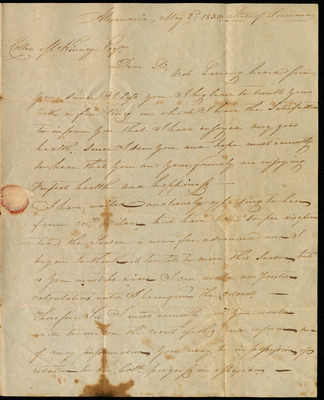 Alexandria, May 2d 1830, State of Louisiana
Collin McKinney Esqr
Dear Sir, Not having heard from
you since I left you I beg leave to trouble you
with a few lines, in which I have the Satisfaction
to inform you that I have enjoyed very good
health Since I saw you and hope most earnestly
to hear that you and your family are enjoying
Perfect health and happiness —
I have waited anxiously expecting to hear
from Col. Milam but have been so far disappoin
ted the Season is now far advanced and I
begin to think of to the this Season but
as you must be aware I can make no positive
calculations until I the Colonel —
Therefore Sir I most earnestly you would
write to me on the receipt of this and inform me
of any information you may be in possession of
relative to the Cols progress in Mexico —